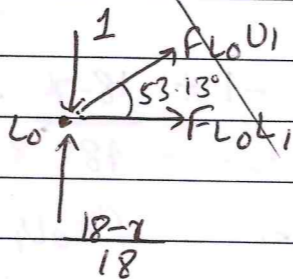 1
FL₀U1
53.13°
L₀ FL₀L1
18-x
18